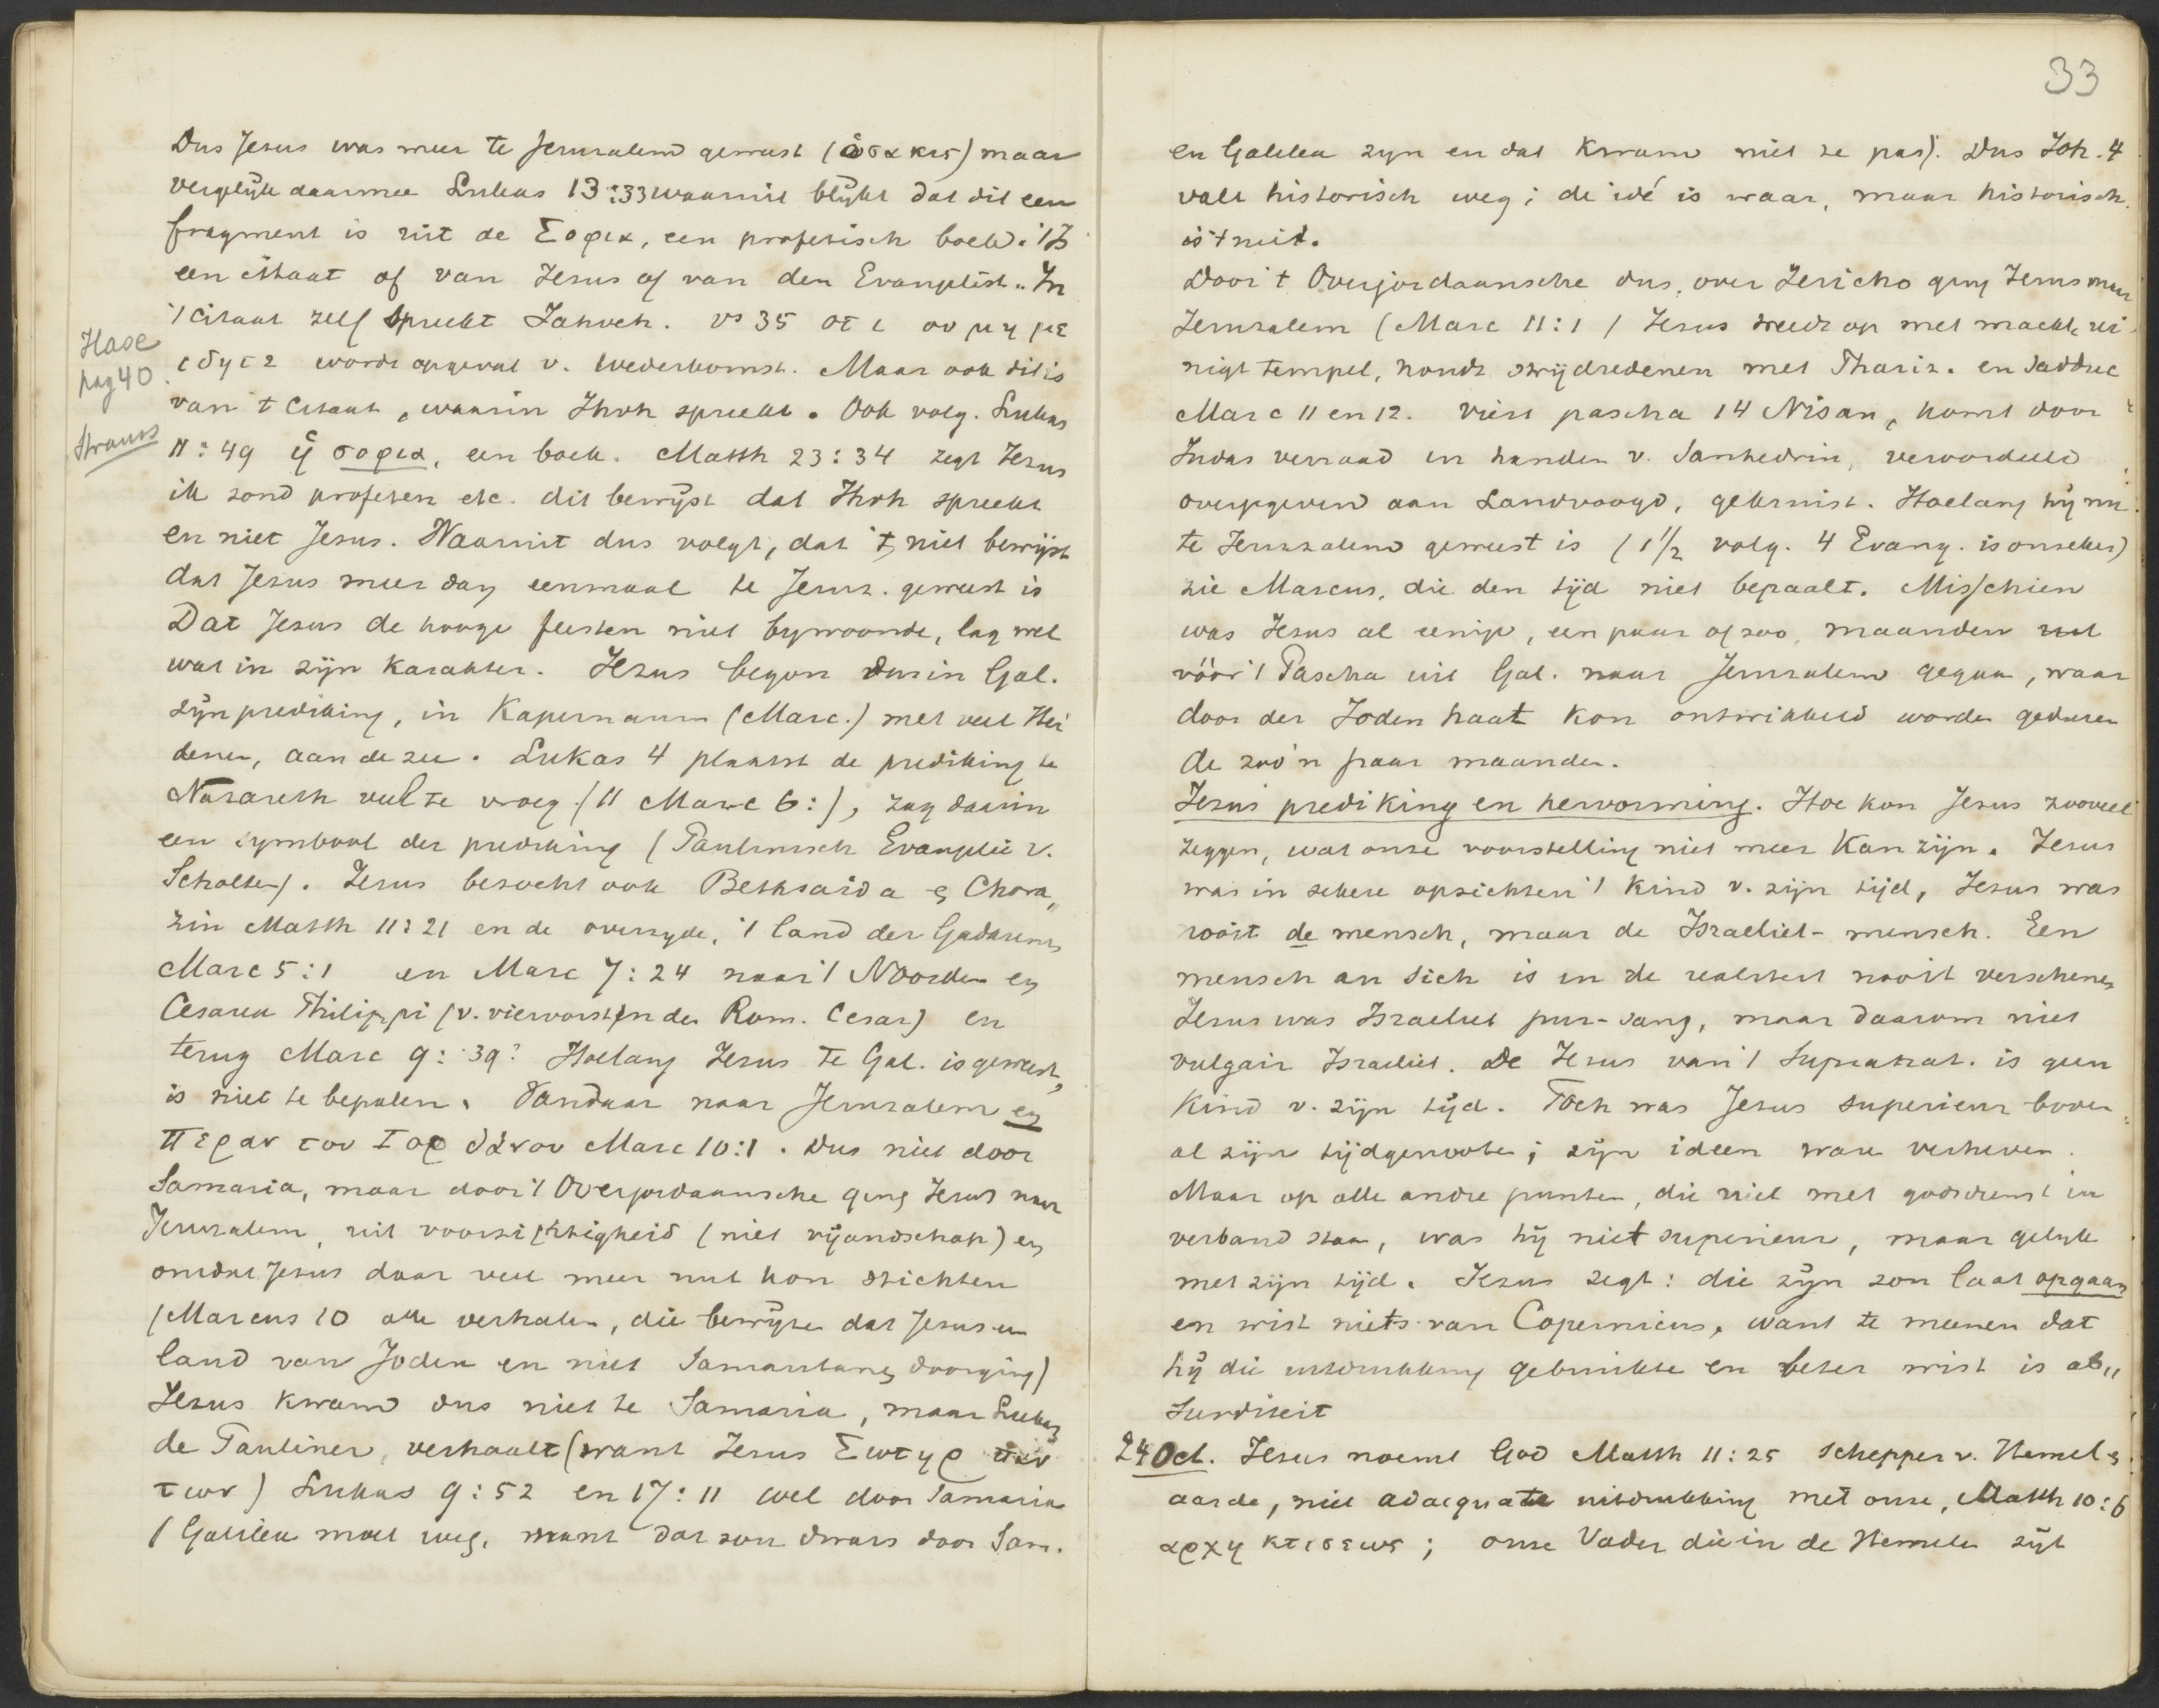 33
Dus Jesus was meer te Jerusalem geweest (ὁσακις) maar
vergelijk daarmee Lukas 13:33 waaruit blijkt dat dit een
fragment is uit de Σοφια, een profetisch boek. 't Is
een citaat of van Jezus of van den Evangelist. In
't citaat zelf spreekt Jahveh. vs 35 οτι ου μη με
ιδητε wordt opgevat v. wederkomst. Maar ook dit is
Hase
pag 40
van t citaat, waarin Jhvh spreekt. Ook volg. Lukas
Strauss
11:49 ἡ σοφια, een boek. Matth 23:34 zegt Jezus
ik zond profeten etc. dit bewijst dat Jhvh spreekt
en niet Jesus. Waaruit dus volgt, dat 't niet bewijst
dat Jesus meer dan eenmaal te Jeruz. geweest is
Dat Jesus de hooge feesten niet bijwoonde, lag wel
wat in zijn karakter. Jezus begon dus in Gal.
zijn prediking, in Kapernaum (Marc.) met veel Hei
denen, aan de zee. Lukas 4 plaatst de prediking te
Nazareth veel te vroeg (11 Marc 6:), zag daarin
een symbool der prediking (Paulinisch Evangelie v.
Scholten). Jezus bezocht ook Bethsaida en Chora„
zin Matth 11:21 en de overzyde, 't land der Gadarenes
Marc 5:1 en Marc 7:24 naar 't Noorden en
Cesarea Philippi (v. viervorst in der Rom. Cesar) en
terug Marc 9:39? Hoelang Jezus te Gal. is geweest,
is niet te bepalen. Vandaar naar Jeruzalem en
περαν του Ιορδανου Marc 10:1. Dus niet door
Samaria, maar door 't Overjordaansche ging Jezus naar
Jeruzalem, uit voorzichtigheid (niet vijandschap) en
omdat Jesus daar veel meer nut kon stichten
(Marcus 10 alle verhalen, die bewijzen dat Jesus een
land van Joden en niet Samaritanen doorging)
Jezus kwam dus niet te Samaria, maar Lukas
de Pauliner, verhaalt (want Jezus Σωτηρ παν
των) Lukas 9:52 en 17:11 wel door Samaria
(Galilea moet weg, want dat zou dwars door Sam.
en Galilea zijn en dat kwam niet te pas). Dus Joh. 4
valt historisch weg; de idé is waar, maar historisch
is 't niet.
Door 't Overjordaansche dus, over Jericho ging Jezus naar
Jeruzalem (Marc 11:1) Jezus treedt op met macht, rei
nigt tempel, houdt strijdredenen met Phariz. en Sadduc
Marc 11 en 12. viert pascha 14 Nisan, komt door
Judas verraad in handen v. Sanhedrin, veroordeeld
overgegeven aan Landvoogd, gekruist. Hoelang hij nu
te Jeruzalem geweest is (1 1/2 volg. 4 Evang. is onzeker)
zie Marcus, die den tijd niet bepaalt. Misschien
was Jezus al eenige, een paar of zoo, maanden
vóór 't Pascha uit Gal. naar Jeruzalem gegaan, waar
door der Joden haat kon ontwikkeld worden geduren
de zoo'n paar maanden.
Jezus' prediking en hervorming. Hoe kon Jesus zooveel
zeggen, wat onze voorstelling niet meer kan zijn. Jezus
was in zekere opzichten 't kind v. zijn tijd, Jezus was
nooit de mensch, maar de Israeliet-mensch. Een
mensch an sich is in de realiteit nooit verschenen
Jezus was Israeliet pur-sang, maar daarom niet
vulgair Israeliet. De Jezus van 't Supranat. is geen
kind v. zijn tijd. Toch was Jesus superieur boven
al zijn tijdgenooten; zijn ideen ware verheven.
Maar op alle andre punten, die niet met godsdienst in
verband staan, was hij niet superieur, maar gelijk
met zijn tijd. Jezus zegt: die zijn zon laat opgaan
en wist niets van Copernicus, want te meenen dat
hij die uitdrukking gebruikte en beter wist is ab„
surditeit
24 Oct. Jezus noemt God Matth 11:25 schepper v. Hemel en
aarde, niet adaequate uitdrukking met onze, Matth 10:6
αρχη κτισεως; onze Vader die in de Hemelen zijt